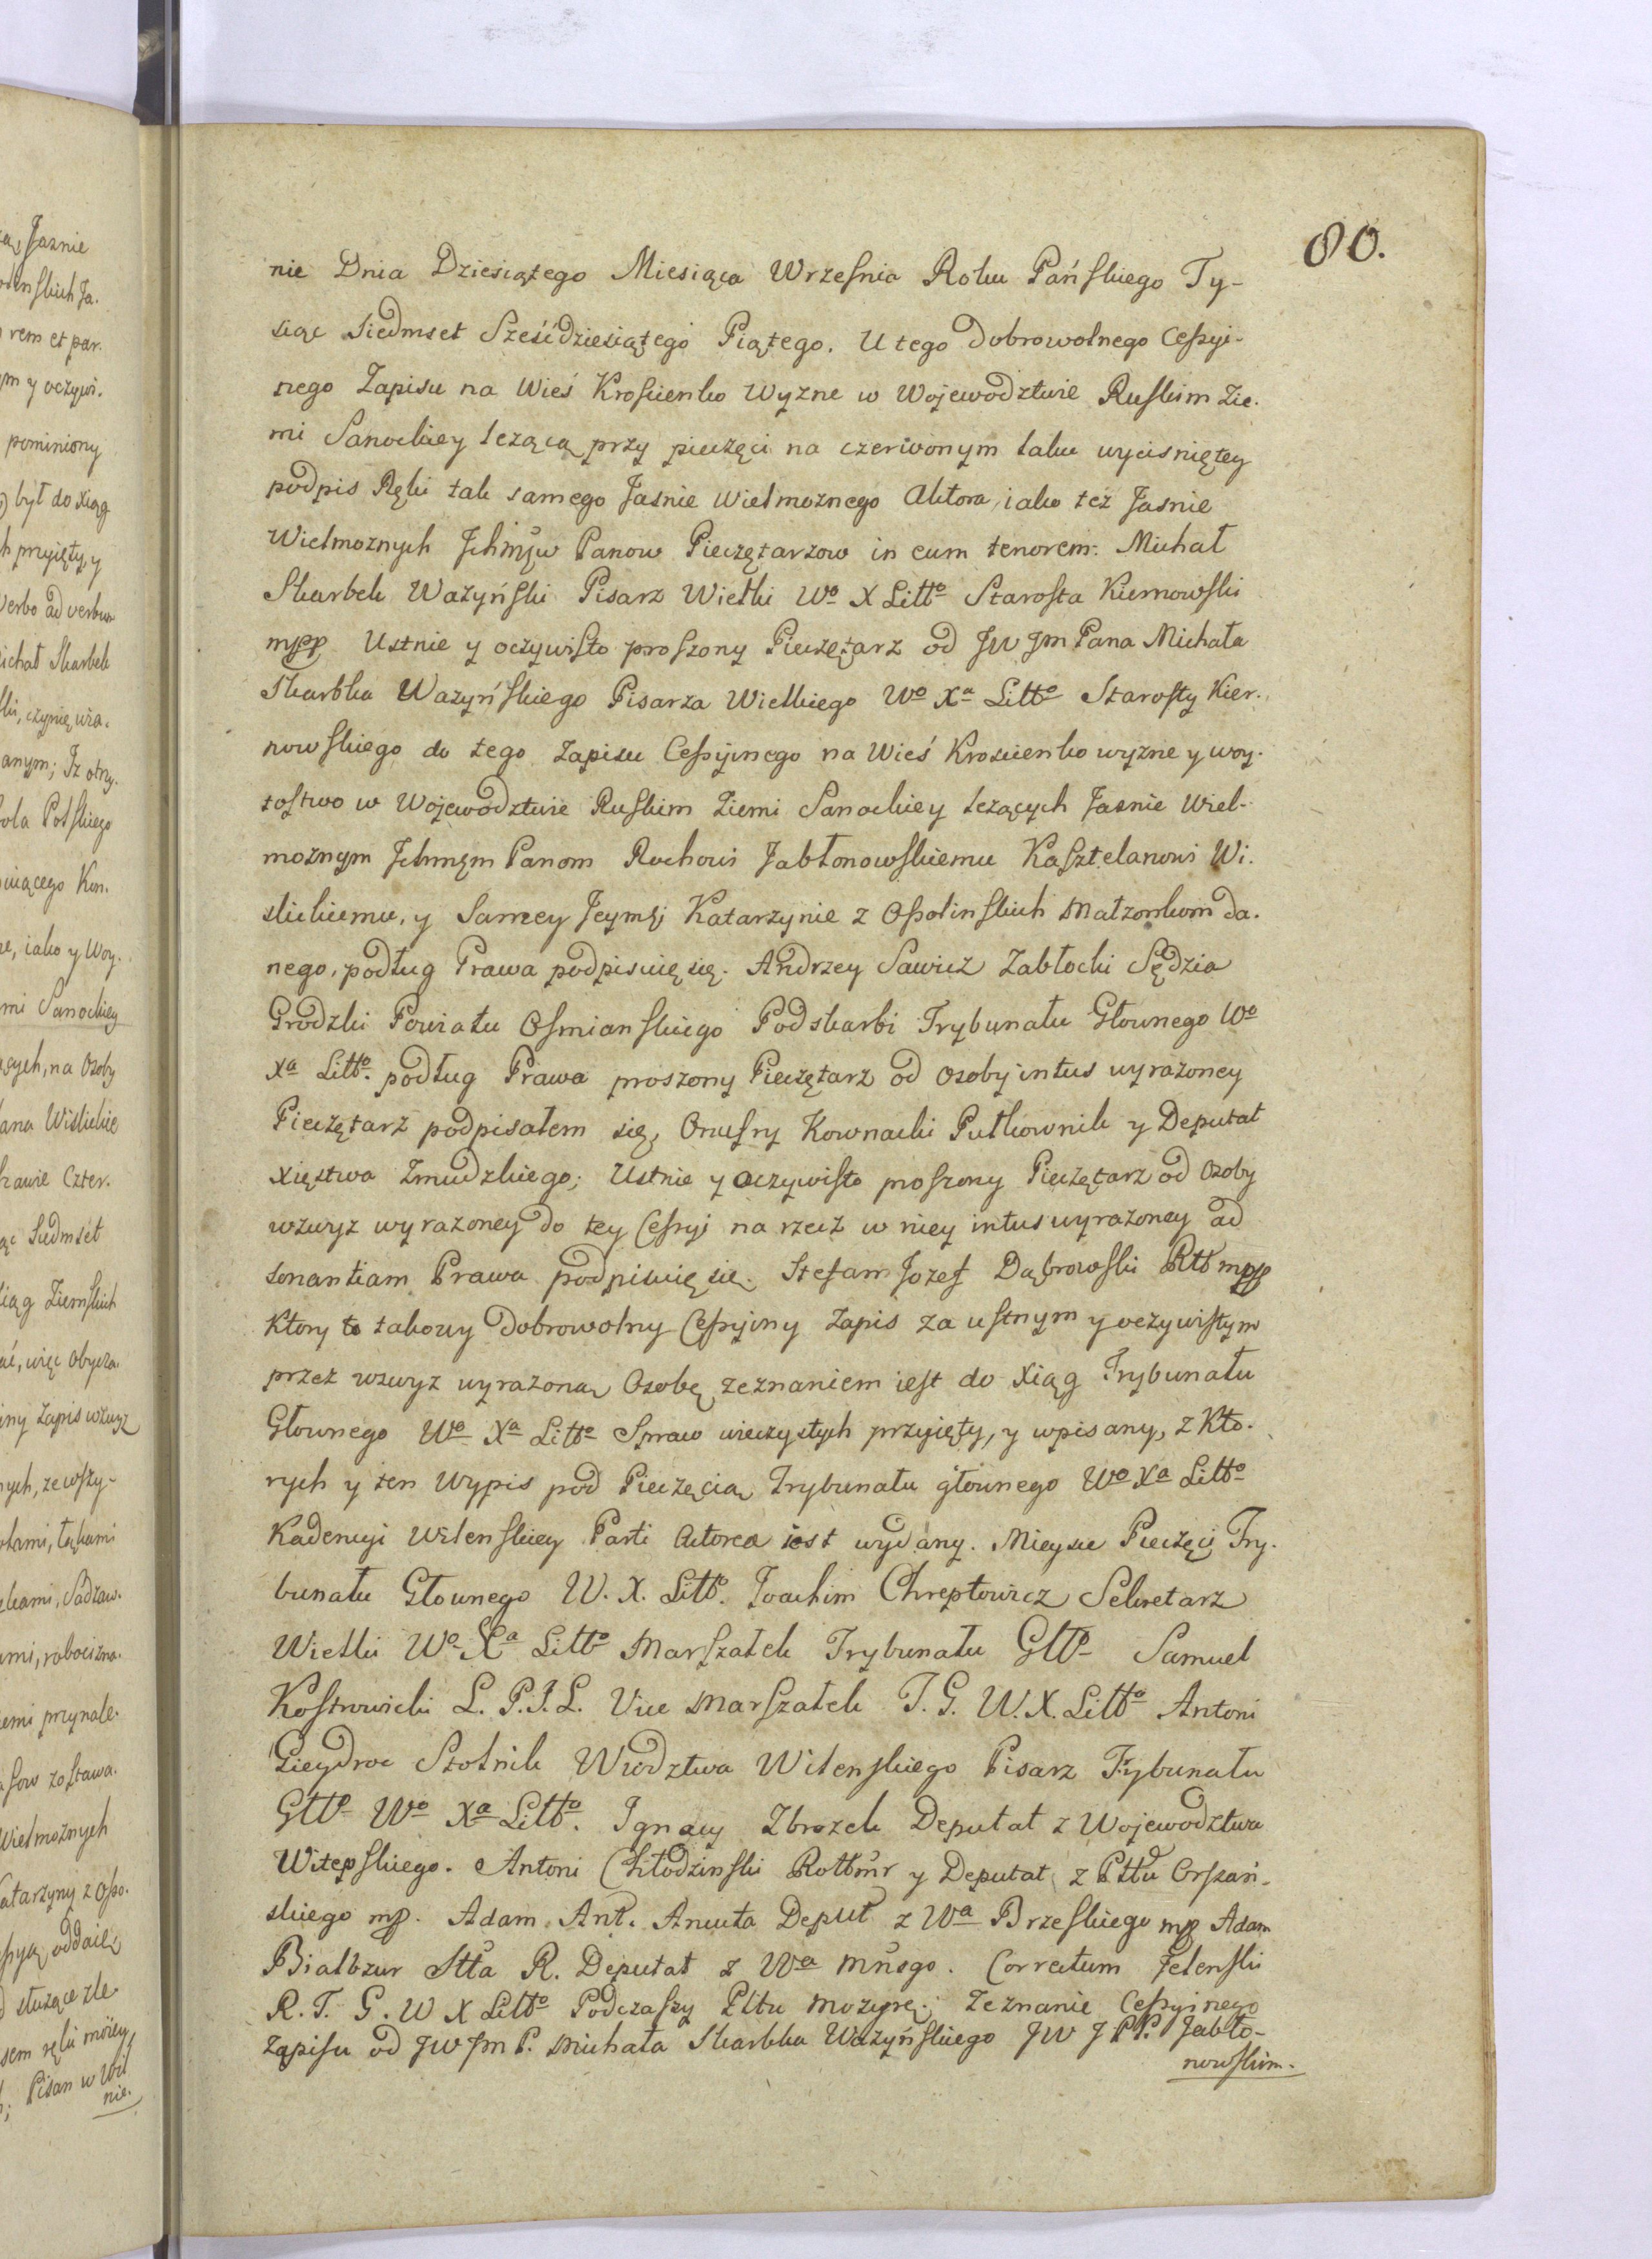 80.
nie Dnia Dziesiątego Miesiąca Wrzesnia Roku Pańskiego Ty-
siąc Siedmset Sześćdziesiątego Piątego. U tego Dobrowolnego Cessyi-
nego Zapisu na Wieś Krościenko Wyzne w Wojewodztwie Ruskim Zie-
mi Sanockiey leżącą przy pieczęci na czerwonym laku wycisniętey
podpis Ręki tak samego Jasnie Wielmoznego Aktora, iako też Jasnie
Wielmoznych Jchmców Panow Pieczętarzow in eum tenorem: Michał
Skarbek Ważyński Pisarz Wielki Wo X Litto Starosta Kiernowski
mpp Ustnie y oczywisto proszony Pieczętarz od JW Jm Pana Michała
Skarbka Ważyńskiego Pisarza Wielkiego Wo Xa Litto Starosty Kier-
nowskiego do tego Zapisu Cessyinego na Wieś Krościenko wyzne y woy-
tostwo w Wojewodztwie Ruskim Ziemi Sanockiey leżących Jasnie Wiel-
moznym Jchmcm Panom Rochowi Jabłonowskiemu Kasztelanowi Wi-
slickiemu, y Samey Jeymsi Katarzynie z Ossolinskich Małzonkom da-
nego, podług Prawa podpisuię się. Andrzey Sawicz Zabłocki Sędzia
Grodzki Powiatu Osmianskiego Podskarbi Trybunału Głownego Wo
Xa Litto. podług Prawa proszony Pieczętarz od Osoby intus wyrażoney
Pieczętarz podpisałem się, Onufry Kownacki Pułkownik y Deputat
Xięstwa Zmudzkiego; Ustnie y oczywisto proszony Pieczętarz od Osoby
wzwyz wyrażoney do tey Cessyi na rzecz w niey intus wyrażoney ad
sonantiam Prawa podpisuię się. Stefan Jozef Dąbrowski Rtt mpp
Ktory to takowy Dobrowolny Cessyiny Zapis za ustnym y oczywistym
przez wzwyz wyrażoną Osobę zeznaniem iest do Xiąg Trybunału
Głownego Wo Xa Litto Spraw wieczystych przyięty, y wpisany, z Kto-
rych y ten Wypis pod Pieczęcią Trybunału głownego Wo Xa Litto
Kadencyi Wilenskiey Parti Actorea iest wydany. Mieysce Pieczęci Try-
bunału Głownego W. X. Litto. Joachim Chreptowicz Sekretarz
Wielki Wo Xa Litto Marszałek Trybunału Gttto Samuel
Kostrowicki L. P. J. L. Vice Marszałek T. G. W. X. Litto Antoni
Gieydroc Stolnik Wwdztwa Wilenskiego Pisarz Trybunału
Gttto Wo Xa Litto. Ignacy Zbrozek Deputat z Wojewodztwa
Witepskiego. Antoni Chłodzinski Rottmr y Deputat z Pttu Orszań-
skiego mp. Adam Ant. Ancuta Deput z Wa Brzeskiego mp Adam
Białbzur Stta R. Deputat z Wa Mńsgo. Correctum Jelenski
R. T. G. W X Litto Podczaszy Pttu mozyre; Zeznanie Cessyinego
Zapisu od JW Jm P. Michała Skarbka Ważyńskiego JW J PP. Jabło-
nowskim.